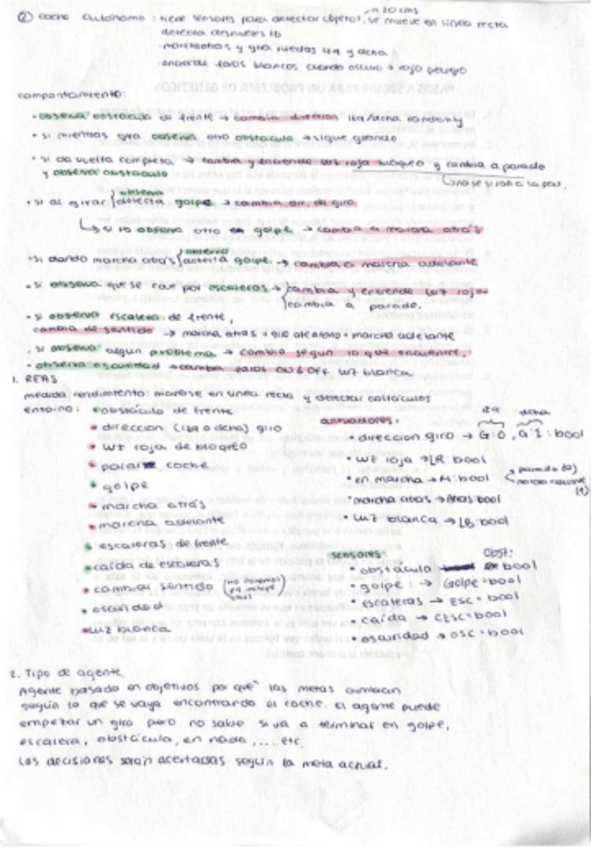 ② coche autónomo: tiene sensores para detectar objetos, se mueve en línea recta
a 20 cms
detecta desniveles 10
marcha atrás y gira ruedas izq y dcha.
enciende faros blancos cuando oscuro + rojo peligro
comportamiento:
• observa obstáculo de frente → cambia dirección izq/dcha random
• si mientras gira observa otro obstáculo → sigue girando
• si da vuelta completa → cambia y enciende luz roja bloqueo y cambia a parado
y observar obstáculo
• si al girar detecta golpe → cambia dir. de giro
observa
↳ si observa otro golpe → cambia a marcha atrás
• si dando marcha atrás detecta golpe → cambia a marcha adelante
observa
• si observa que se cae por escaleras → cambia y enciende luz roja
cambia a parado.
• si observa escalera de frente,
cambia de sentido → marcha atrás + giro + marcha adelante
• si observa algún problema → cambia según lo que encuentre.
• observa oscuridad → cambia faros ON & OFF luz blanca
1. REAS
medida rendimiento: moverse en linea recta y detectar obstáculos
entorno: • obstáculo de frente
• direccion (izq o dcha) giro
• luz roja de bloqueo
• parar coche
• golpe
• marcha atrás
• marcha adelante
• escaleras de frente
• caída de escaleras
• cambiar sentido
• oscuridad
• luz blanca
actuadores:
izq dcha
• direccion giro → G:0, G:1: bool
• luz roja → LR: bool
• en marcha → M: bool
parado (0)
(1)
• marcha atras → Atras: bool
• luz blanca → LB: bool
sensores:
Obst:
• obstáculo bool
• golpe: → Golpe = bool
• escaleras → ESC = bool
• caída → CESC = bool
• oscuridad → OSC = bool
2. Tipo de agente
Agente basado en objetivos por que las metas cambian
según lo que se vaya encontrando el coche. El agente puede
empezar un giro pero no sabe si va a terminar en golpe,
escalera, obstáculo, en nada, .... etc.
Las decisiones serán acertadas según la meta actual.